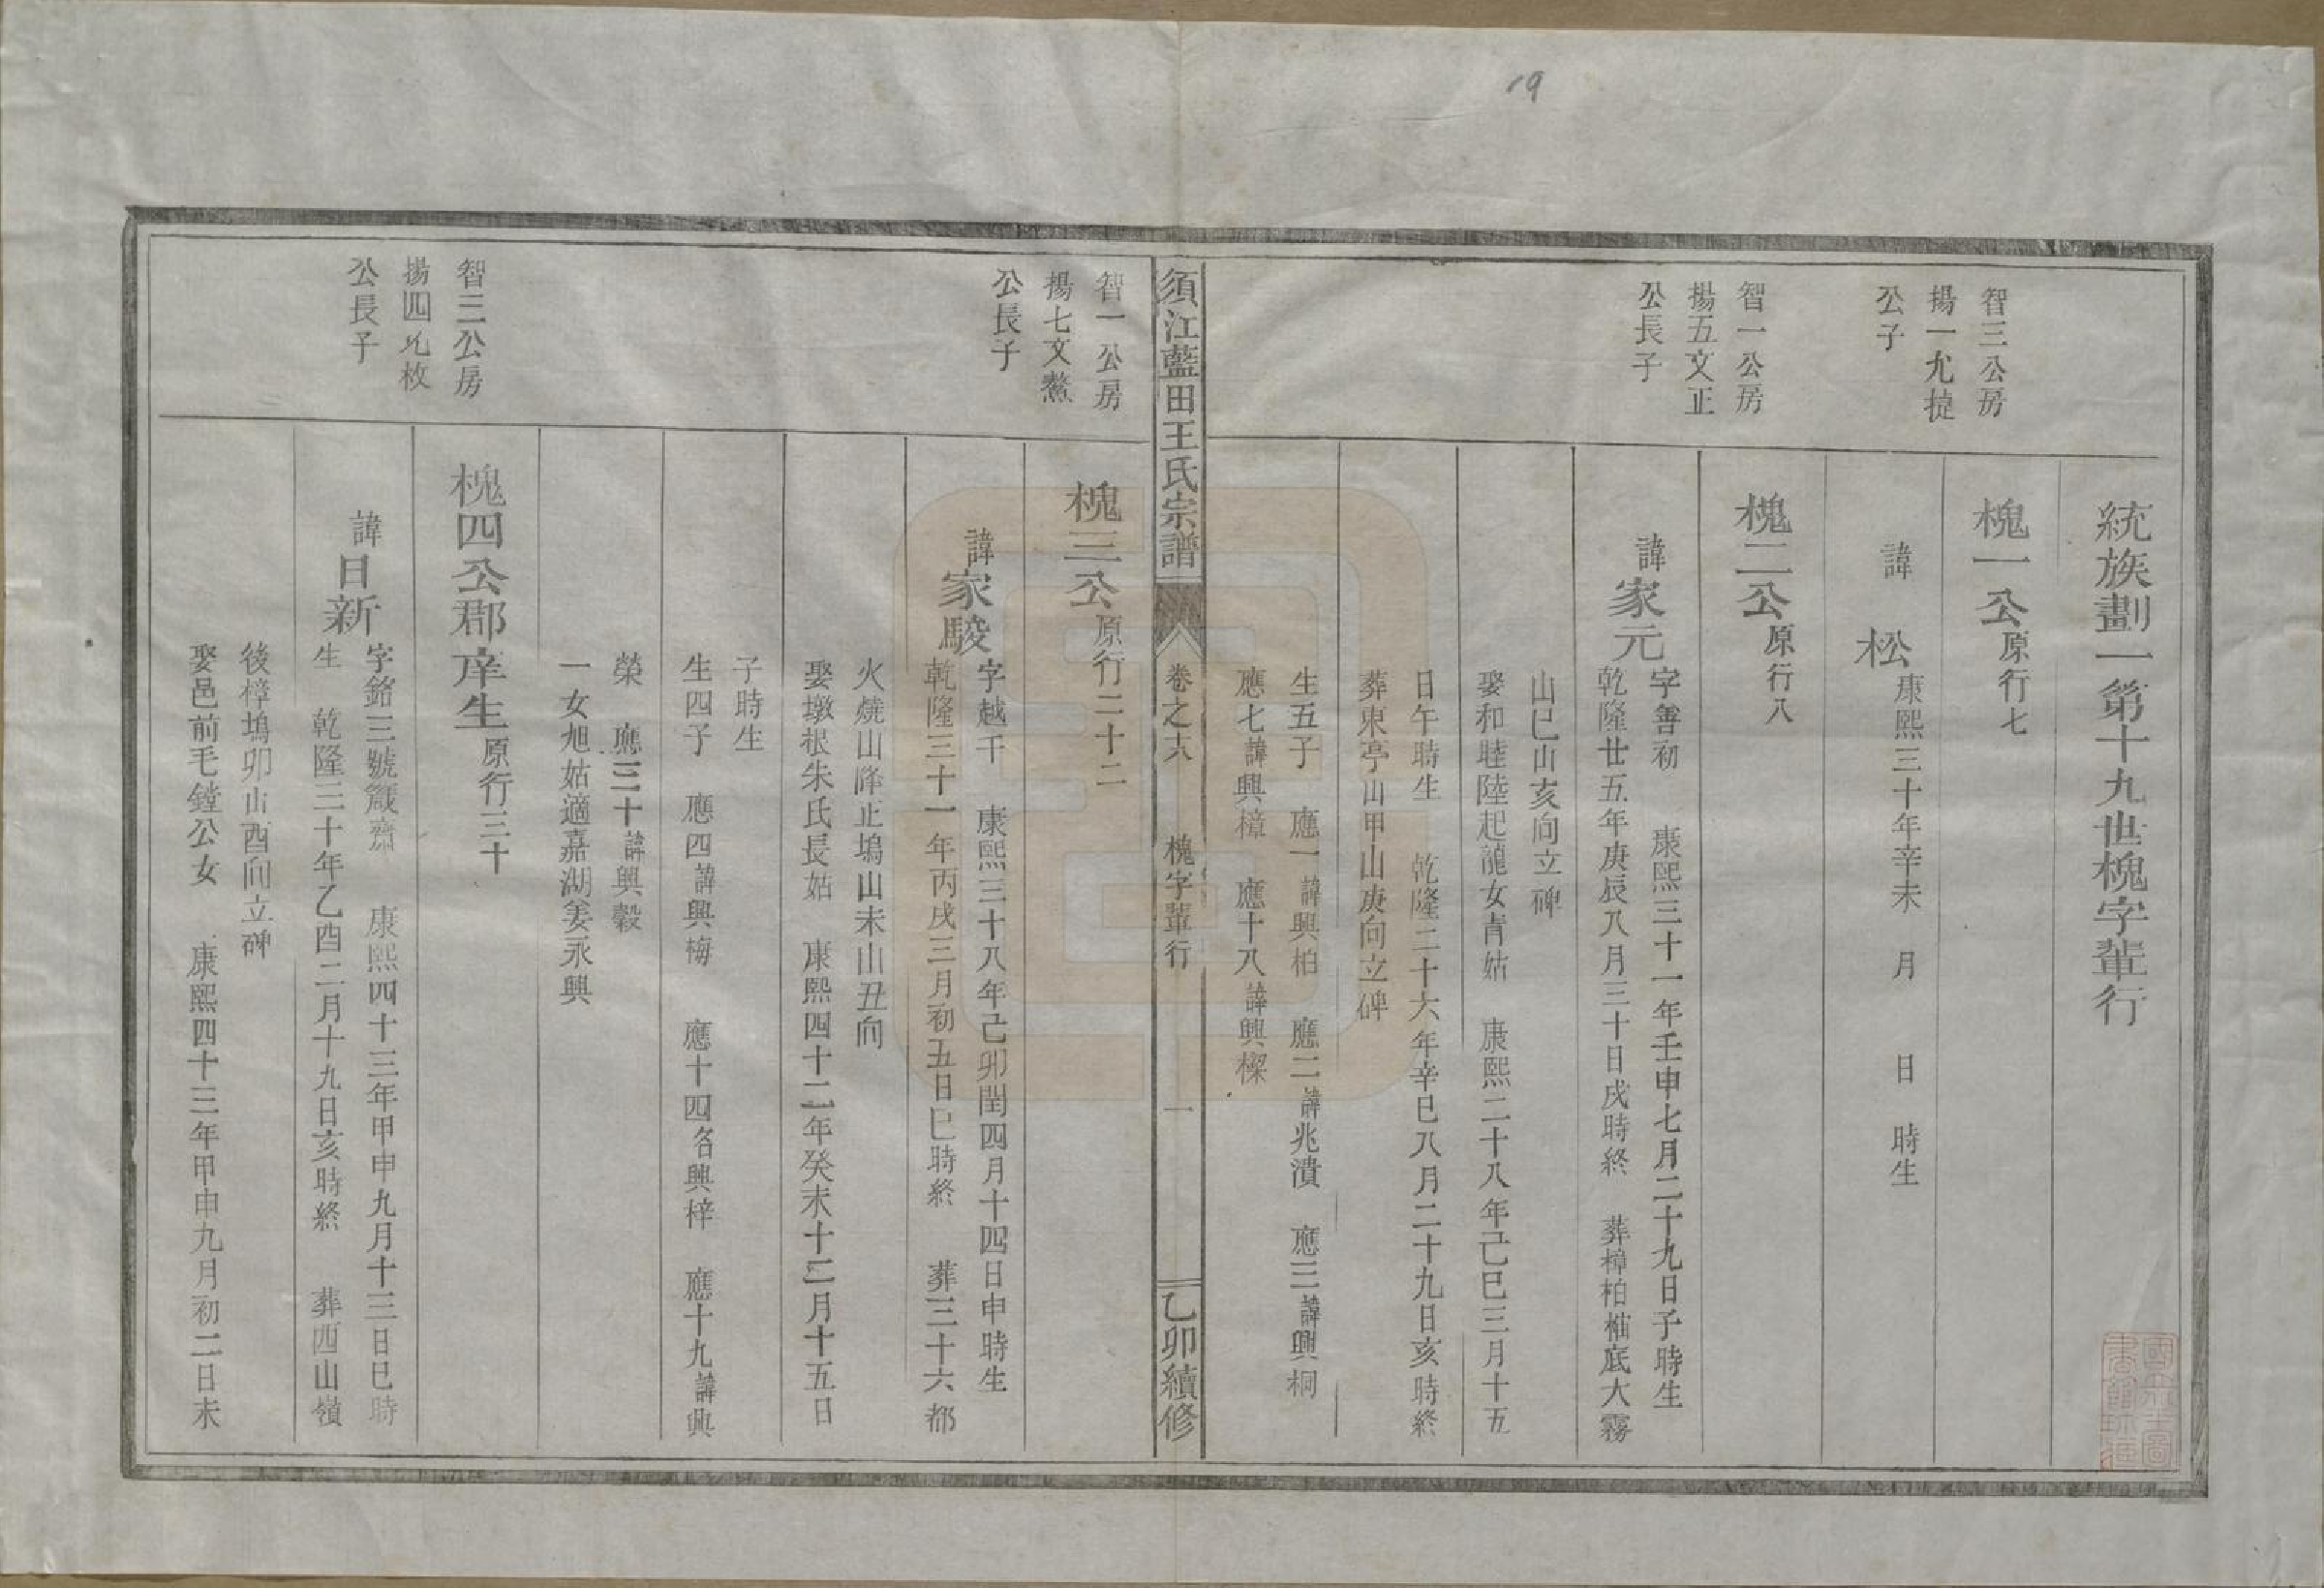 19
統族劃一第十九世槐字輩行
智三公房
揚一允㨗
公子
槐一公原行七
諱松
康熙三十年辛未 月 日 時生
智一公房
揚五文正
公長子
槐二公原行八
諱家元
字善初 康熙三十一年壬申七月二十九日子時生
乾隆廿五年庚辰八月三十日戌時終 葬樟柏柚底大霧
山巳山亥向立碑
娶和睦陸起龍女青姑 康熙二十八年己巳三月十五
日午時生 乾隆二十六年辛巳八月二十九日亥時終
葬東亭山甲山庚向立碑
生五子 應一諱興柏 應二諱兆瀆 應三諱興桐
應七諱興樟 應十八諱興樑
須江藍田王氏宗譜
卷之六 槐字輩行 一
乙卯續修
智一公房
揚七文鰲
公長子
槐三公原行二十二
諱家駿
字越千 康熙三十八年己卯閏四月十四日申時生
乾隆三十一年丙戌三月初五日巳時終 葬三十六都
火燒山降止塢山未山丑向
娶墩根朱氏長姑 康熙四十二年癸未十二月十五日
子時生
生四子 應四諱興梅 應十四名興梓 應十九諱興
榮 應三十諱興穀
一女旭姑適嘉湖姜永興
智三公房
揚四允枚
公長子
槐四公郡庠生原行三十
諱日新
字銘三號箴齋 康熙四十三年甲申九月十三日巳時
生 乾隆三十年乙酉二月十九日亥時終 葬西山嶺
後樟塢卯山酉向立碑
娶邑前毛鏜公女 康熙四十三年甲申九月初二日未